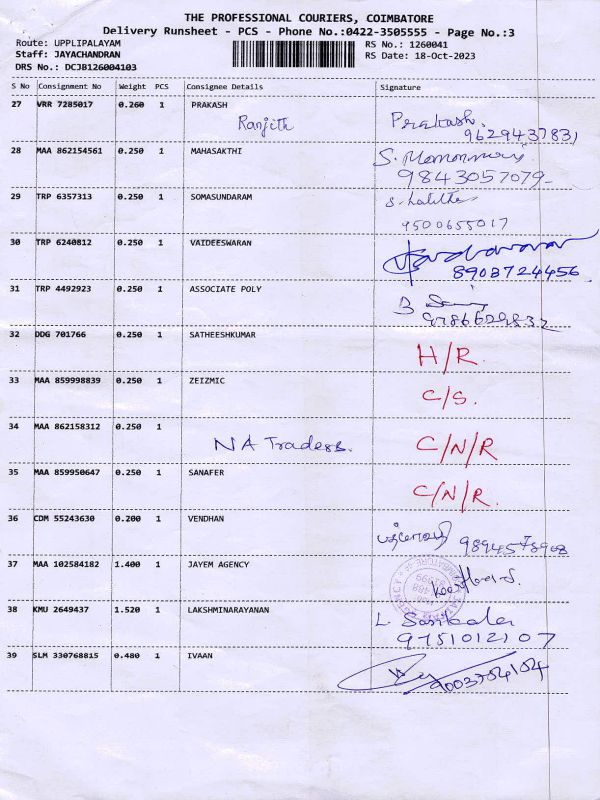 THE PROFESSIONAL COURIERS, COIMBATORE
Delivery Runsheet - PCS - Phone No.:0422-3505555 - Page No.:3
Route: UPPLIPALAYAM RS No.: 1260041
Staff: JAYACHANDRAN RS Date: 18-Oct-2023
DRS No.: DCJB126004103
S No Consignment No Weight PCS Consignee Details Signature
27 VRR 7285017 0.260 1 PRAKASH Prakash.
Ranjith 9629437831
28 MAA 862154561 0.250 1 MAHASAKTHI S.
9843057079
29 TRP 6357313 0.250 1 SOMASUNDARAM S. Lalitha
9500655017
30 TRP 6240812 0.250 1 VAIDEESWARAN
8903724456
31 TRP 4492923 0.250 1 ASSOCIATE POLY B
32 DDG 701766 0.250 1 SATHEESHKUMAR H/R.
33 MAA 859998839 0.250 1 ZEIZMIC C/S.
34 MAA 862158312 0.250 1
NA Traders. C/N/R
35 MAA 859950647 0.250 1 SANAFER C/N/R.
36 CDM 55243630 0.200 1 VENDHAN
37 MAA 102584182 1.400 1 JAYEM AGENCY
38 KMU 2649437 1.520 1 LAKSHMINARAYANAN L. Sasikala
9751012107
39 SLM 330768815 0.480 1 IVAAN
9003754154